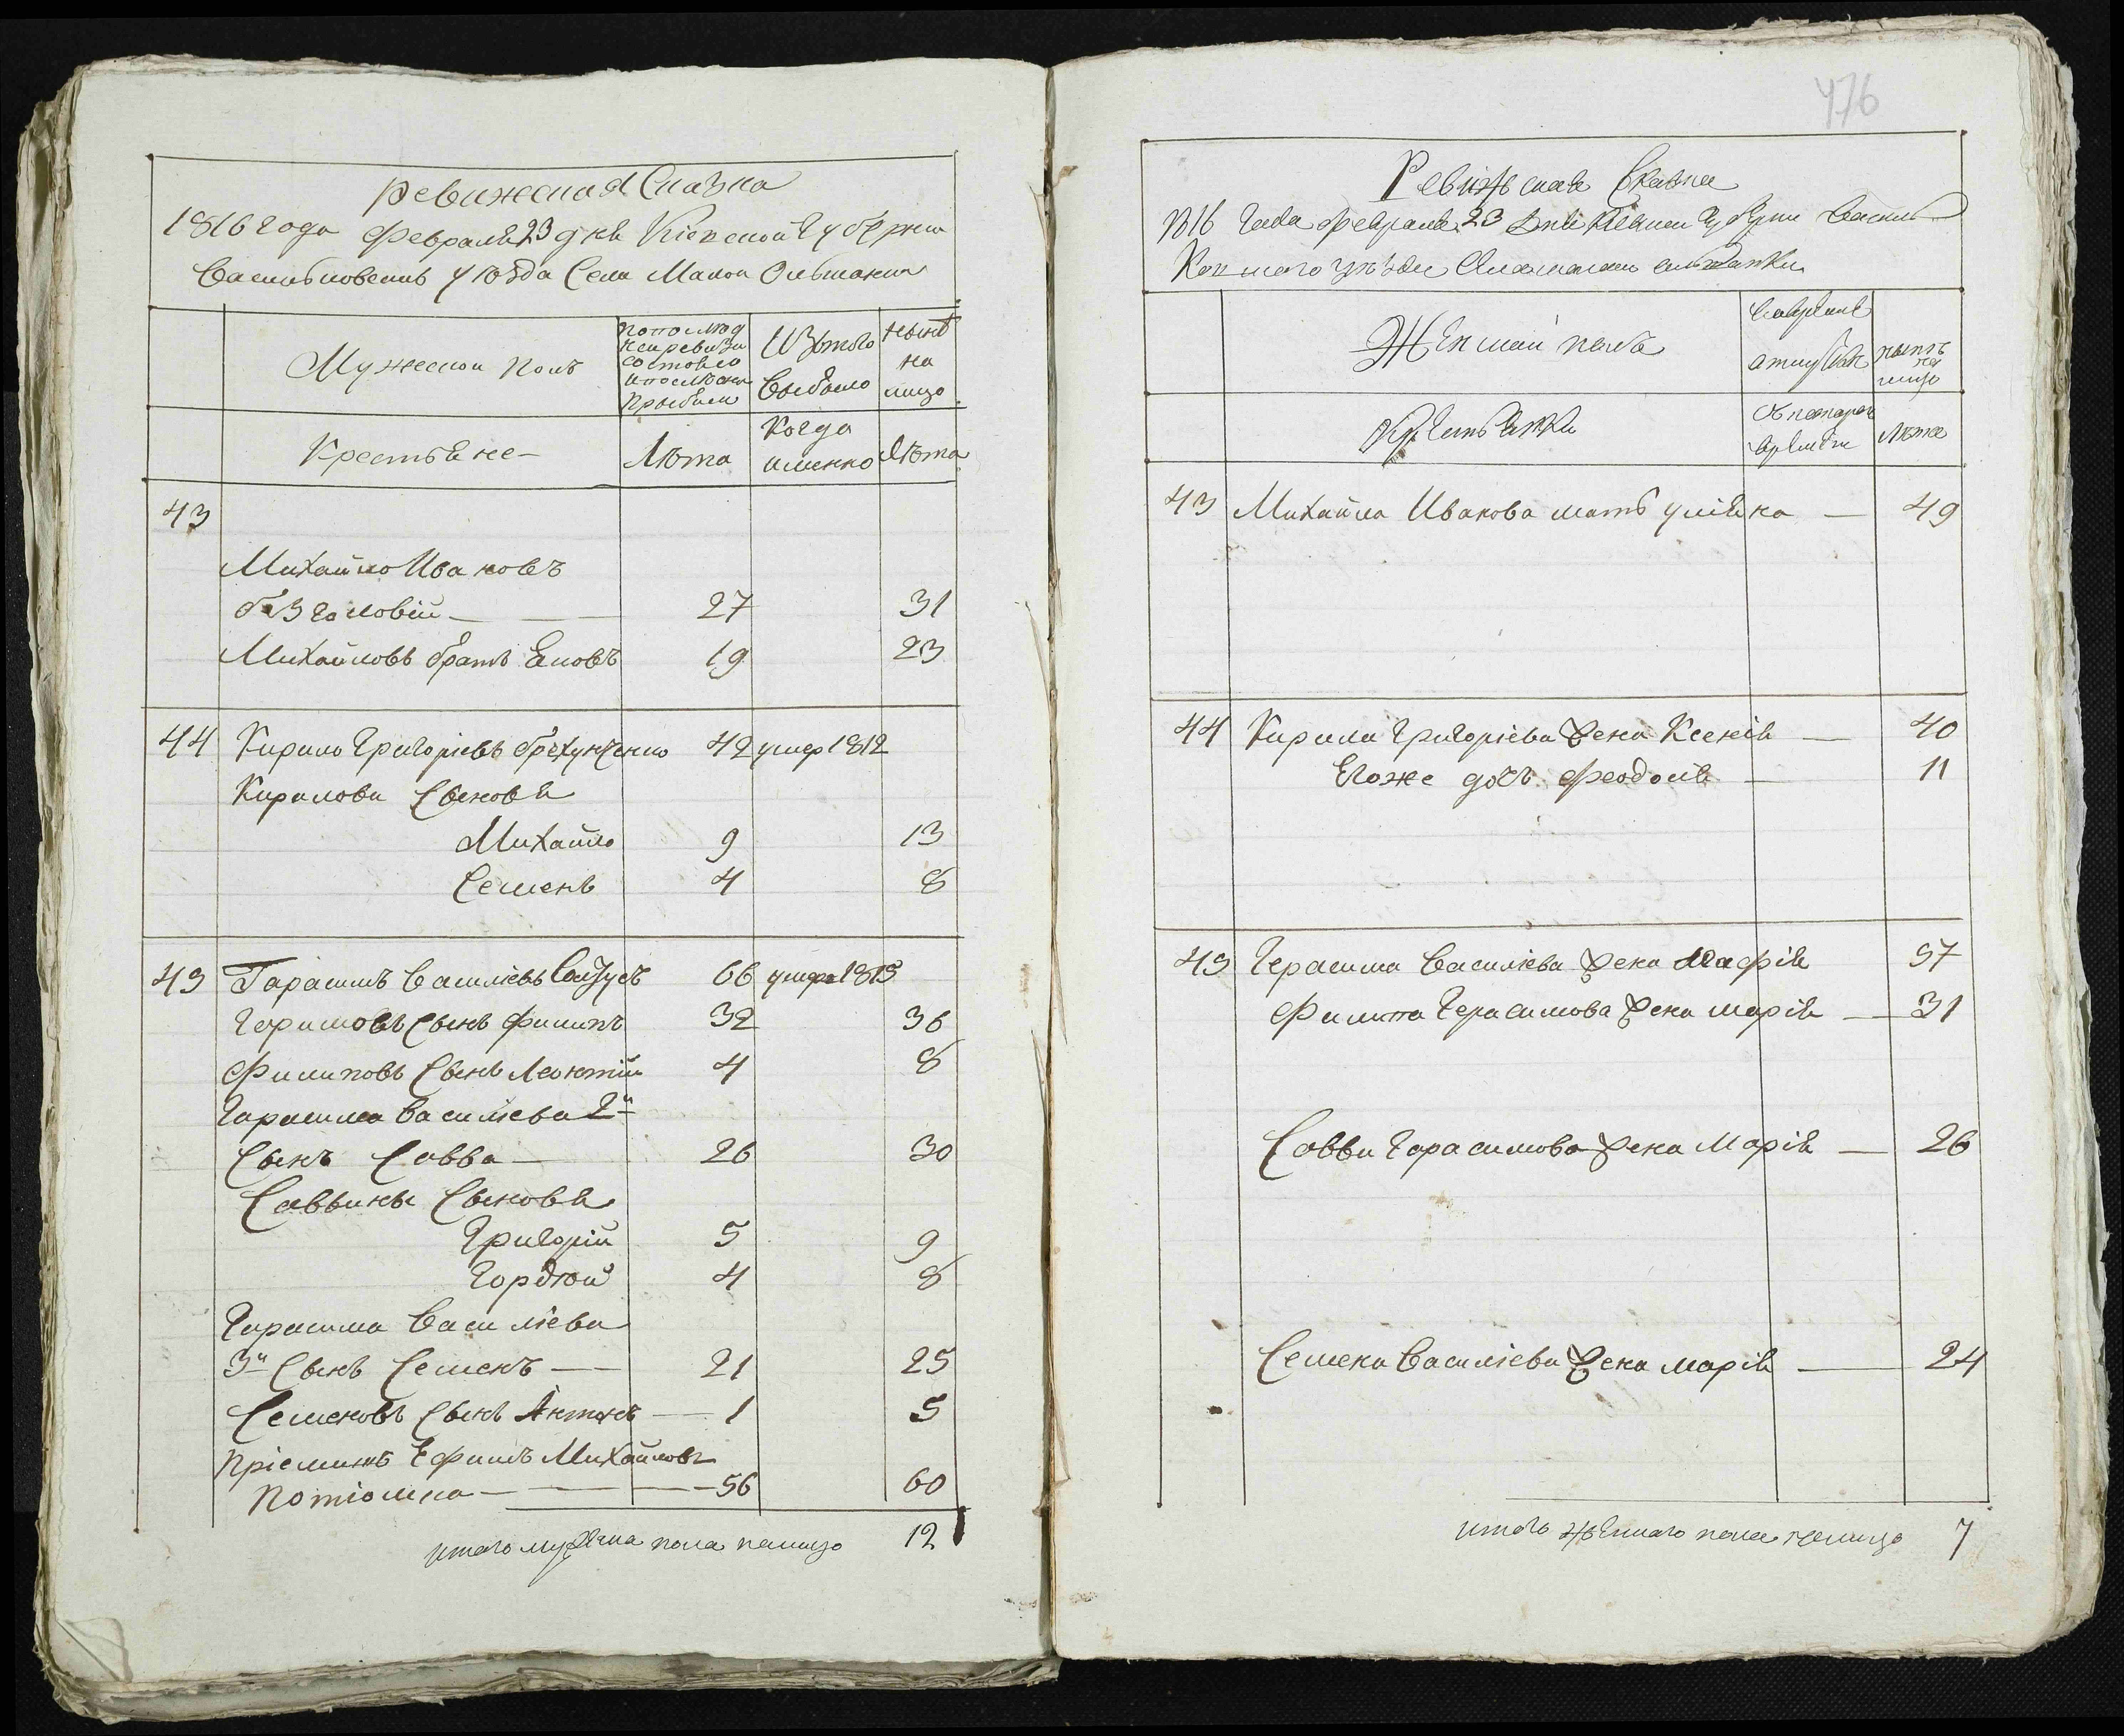 Ревижская Сказка
1816 года Февраля 23 дня Кіевской Губерніи
Васильковскаго уѣзда Села Малой Ольшанки
Мужеской полъ
по последней ревизіи состояло и после оной прибыло
Изъ того выбыло
ныне на лицо
Крестьяне
Лѣта
когда именно
Лѣта
43
Михайло Ивановъ
Безголовій — 27 31
Михайловъ братъ Яковъ 19 23
44 Кирило Григоріевъ Брехунченко 42 умер 1812
Кирилови Сыновя
Михайло 9 13
Семенъ 4 8
45 Гарасимъ Василіевъ 66 умер 1815
Гарасимовъ Сынъ Филипъ 32 36
Филиповъ Сынъ Леонтій 4 8
Гарасима Василіева 2й
Сынъ Савва — 26 30
Саввины Сыновя
Григорій 5 9
Гордѣй 4 8
Гарасима Василіева
3й Сынъ Семенъ — 21 25
Семеновъ Сынъ Антонъ — 1 5
Пріемышъ Ефимъ Михайловъ
Потіомка — 56 60
итого мужеска пола налицо 12
476
Ревижская Сказка
1816 Года Февраля 23 Дня Кіевской Губерніи Василь
ковского уѣзда Села Малой Ольшанки
Женскай полъ
во временной отлучкѣ
ныне на лицо
Крестьянки
Съ котораго времени
Лѣта
43 Михайла Иванова мать Уліяна — 49
44 Кирила Григоріева жена Ксенія — 40
Егоже дочъ Феодосія — 11
45 Герасима Василіева жена Мафія 57
Филипа Герасимова жена Марія — 31
Саввы Гарасимова жена Марія — 26
Семена Василіева жена Марія — 24
итого женскаго пола налицо 7